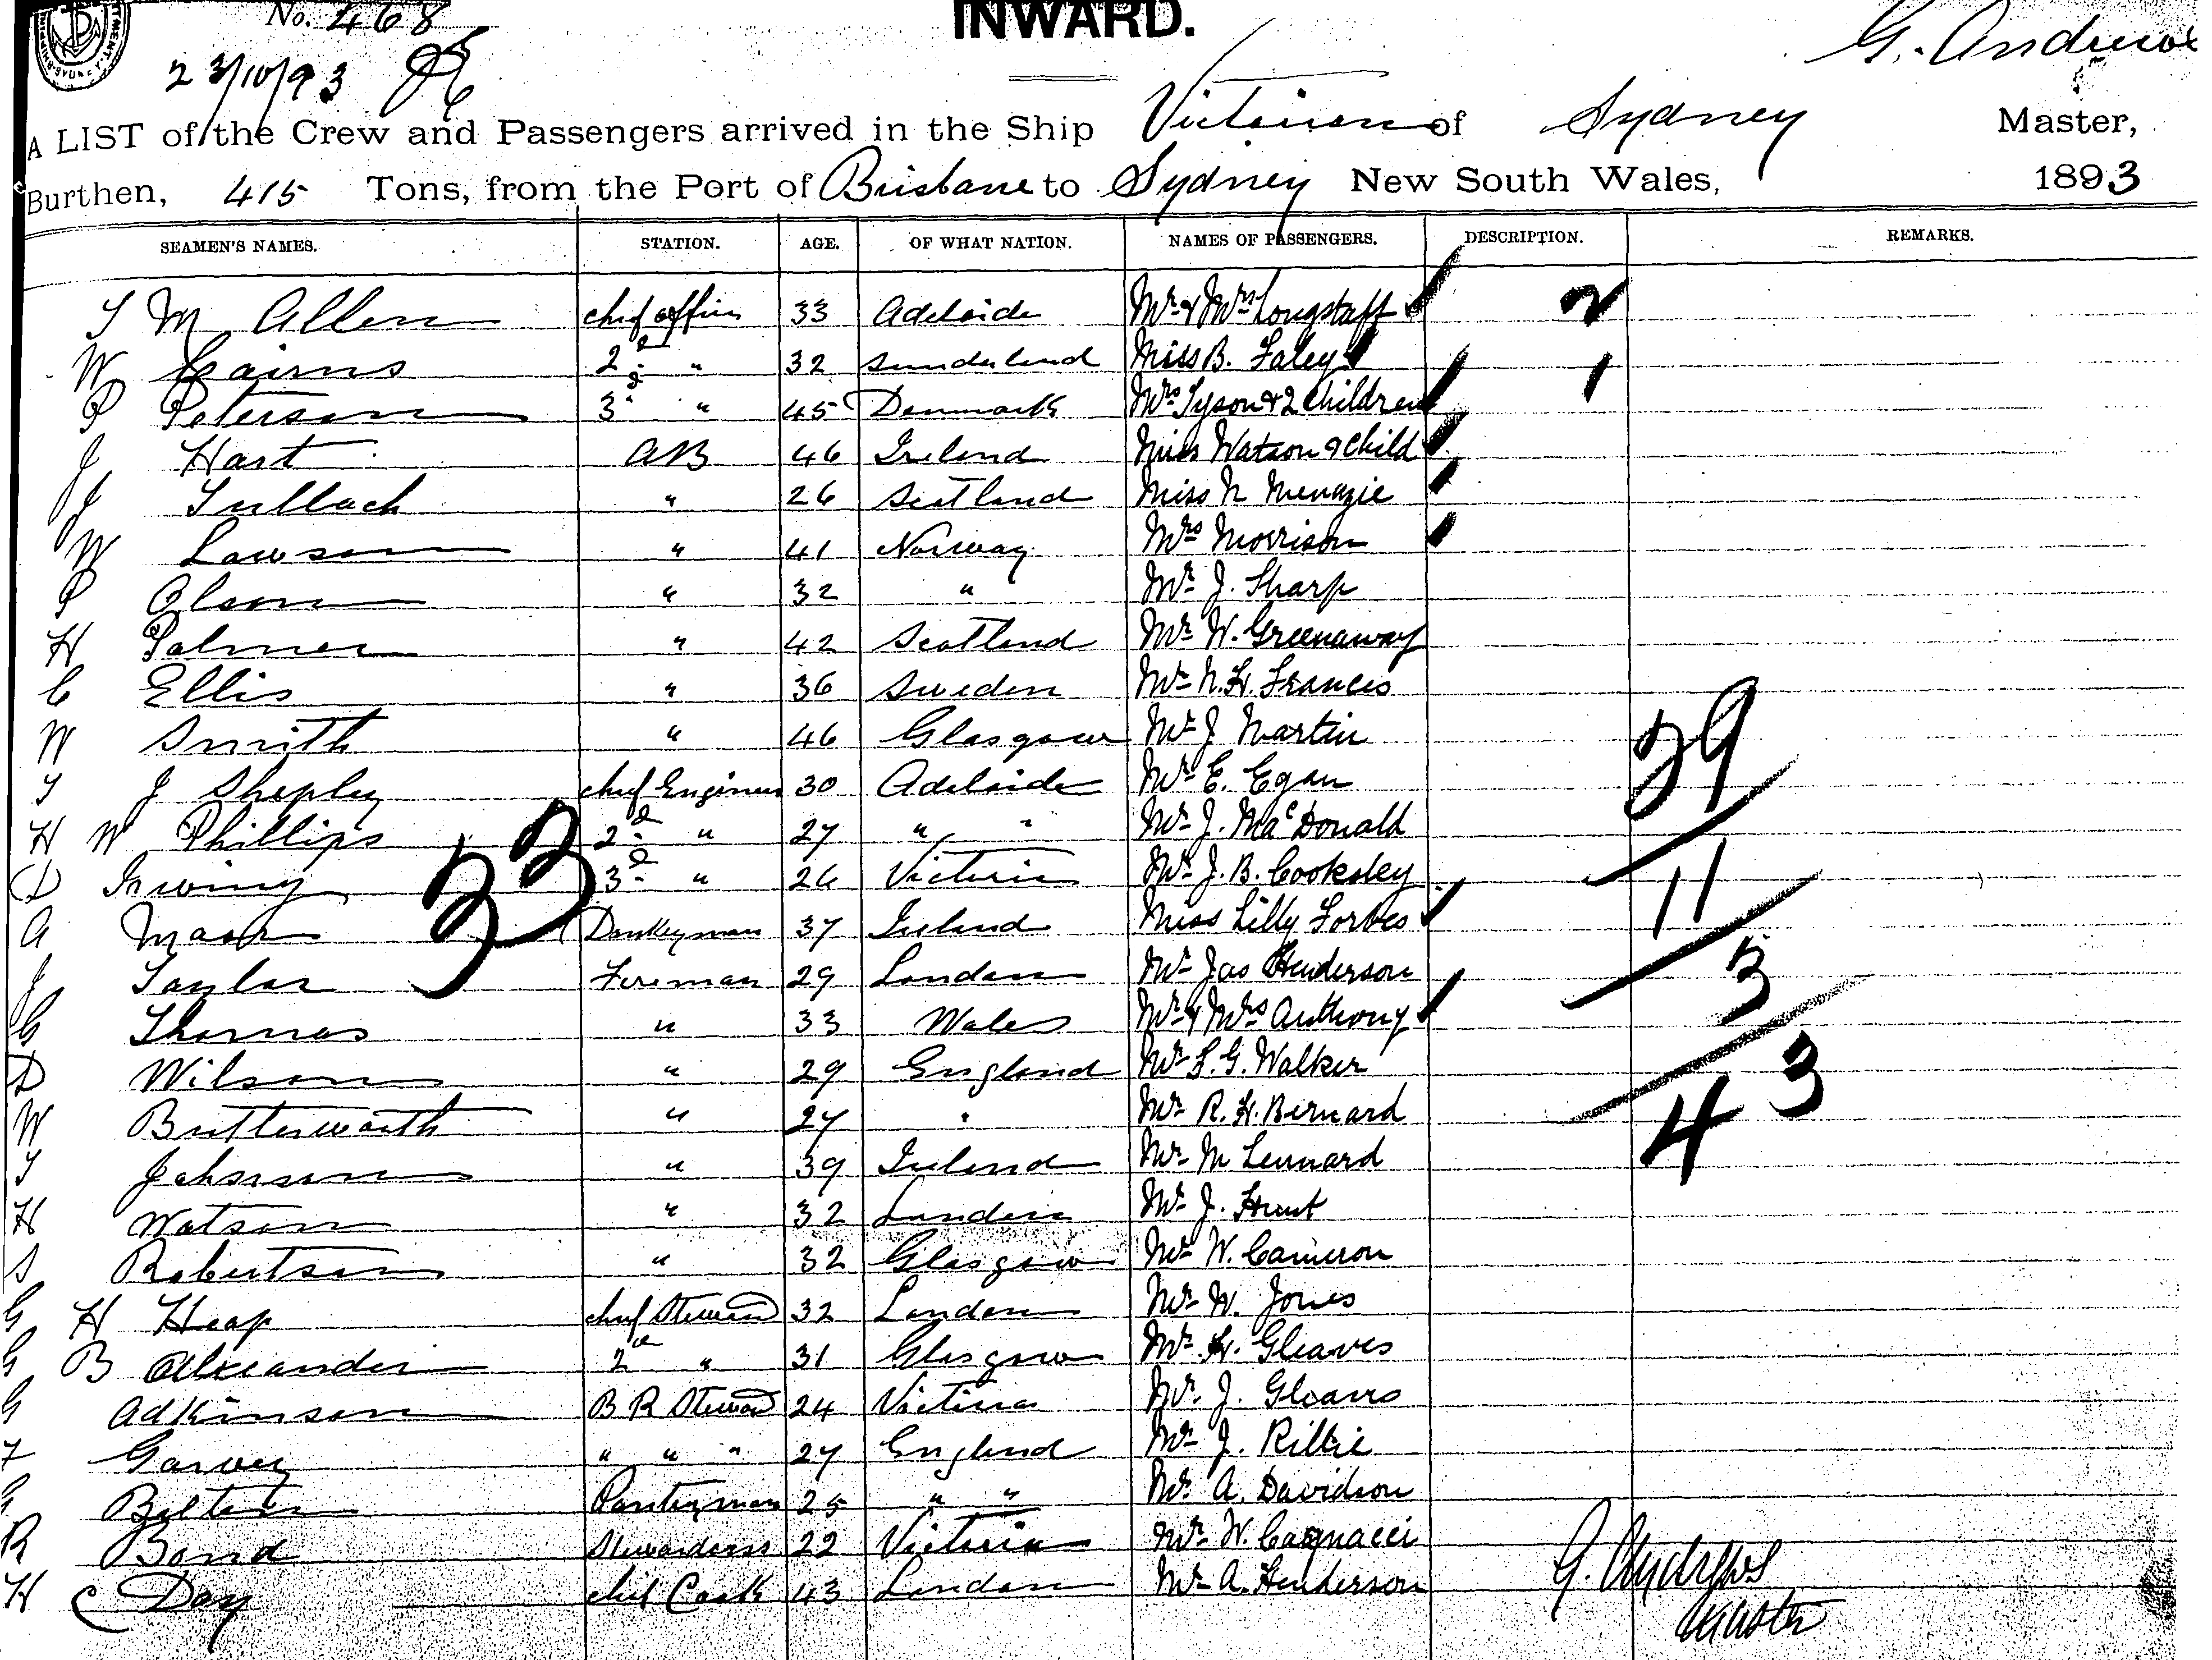 No. 468
INWARD.
G. Andrews
23/10/93
A LIST of the Crew and Passengers arrived in the Ship Victorian of Sydney Master,
Burthen, 415 Tons, from the Port of Brisbane to Sydney New South Wales, 1893
SEAMEN'S NAMES. STATION. AGE. OF WHAT NATION. NAMES OF PASSENGERS. DESCRIPTION. REMARKS.
T M Allen chief officer 33 Adelaide Mr & Mrs Longstaff 2
W Cairns 2d " 32 Sunderland Miss B. Faley 1
P Peterson 3d " 45 Denmark Mrs Tyson & 2 Children
J Hart AB 46 Ireland Miss Watson & Child
J Tulloch " 26 Scotland Miss N Menazie
W Lawson " 41 Norway Mrs Morrison
P Olson " 32 " Mr J. Sharp
H Palmer " 42 Scotland Mr W. Greenaway
C Ellis " 36 Sweden Mr N. H. Frances
W Smith " 46 Glasgow Mr J Martin
T J Shepley chief Engineer 30 Adelaide Mr E. Egan
H W Phillips 2d " 27 " " Mr J. MacDonald
D Irwing 3d " 26 Victoria Mr J. B. Cooksley
A Donkeyman 37 Ireland Miss Lilly Forbes
J Taylor Fireman 29 London Mr Jas Henderson
C Thomas " 33 Wales Mr & Mrs Anthony
D Wilson " 29 England Mr F. G. Walker
W Butterworth " 27 " Mr R. H. Bernard
T Johnson " 39 Ireland Mr M Lennard
H Watson " 32 London Mr J. Hunt
S Robertson " 32 Glasgow Mr W. Cameron
G H Heap chief Steward 32 London Mr W. Jones
G B Alexander 2d " 31 Glasgow Mr H. Gleaves
G Adkinson B R Steward 24 Victoria Mr J. Gleaves
F Garvey " " " 27 England Mr J. Rillie
G Bolton Pantryman 25 " " Mr A. Davidson
R Bond Stewardess 22 Victoria Mr W. Cagnacci
H C Day chief Cook 43 London Mr A. Henderson
33
29
11
3
43
G. Andrews
Master